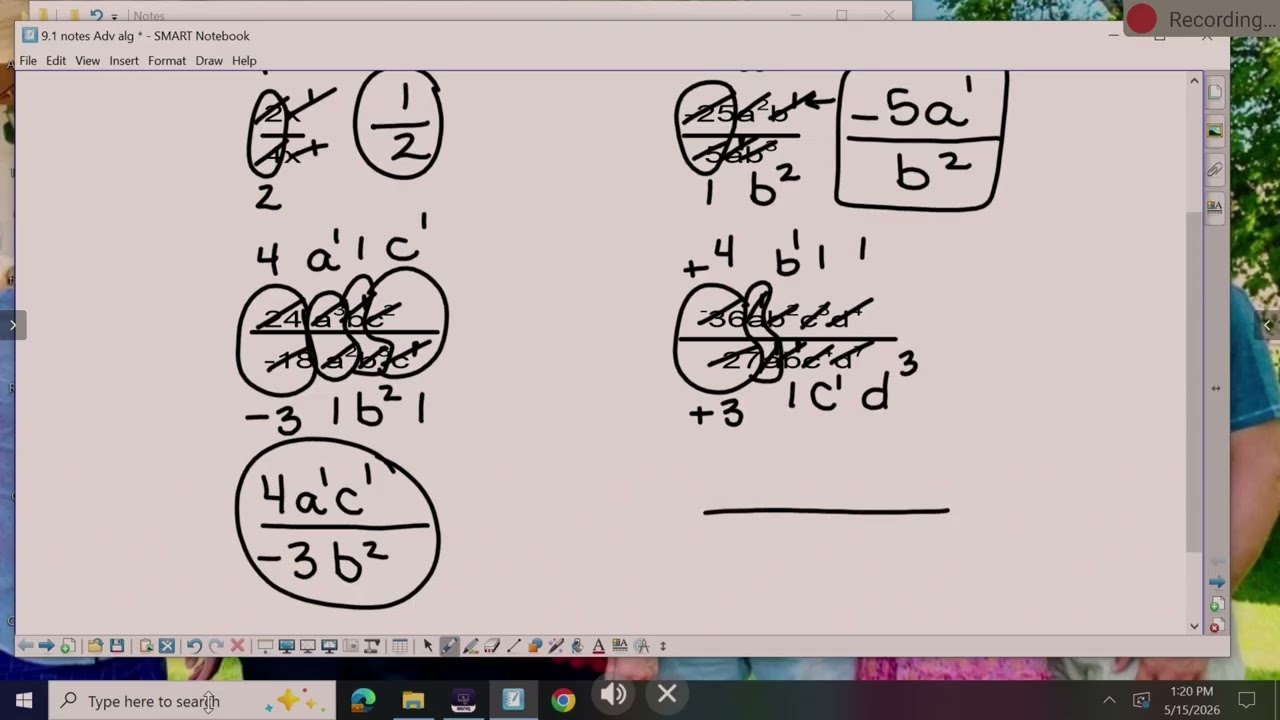 Notes
Recording...
9.1 notes Adv alg * - SMART Notebook
File Edit View Insert Format Draw Help
2x¹
4x¹
2
1
2
-25a²b¹
5ab³
1 b²
-5a¹
b²
4 a¹ 1 c¹
24a³bc²
-18a²b³c¹
-3 1 b² 1
4a¹c¹
-3b²
+4 b¹ 1 1
-36ab²c³d⁴
-27abc⁴d⁷
+3 1 c¹ d³
Type here to search
1:20 PM
5/15/2026